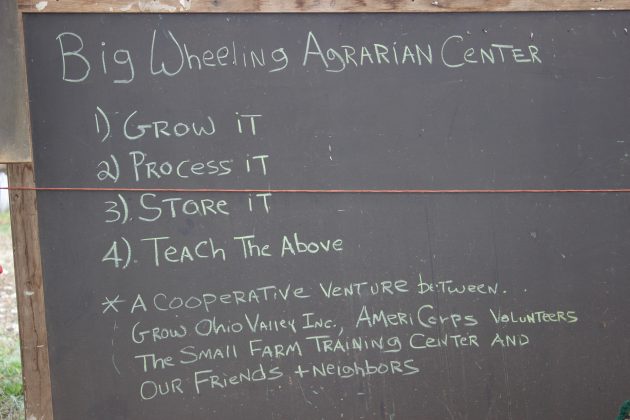 Big Wheeling Agrarian Center
1) Grow it
2) Process it
3). Store it
4). Teach The Above
* A cooperative venture between..
Grow Ohio Valley Inc., AmeriCorps Volunteers
The Small Farm Training Center and
our Friends + neighbors